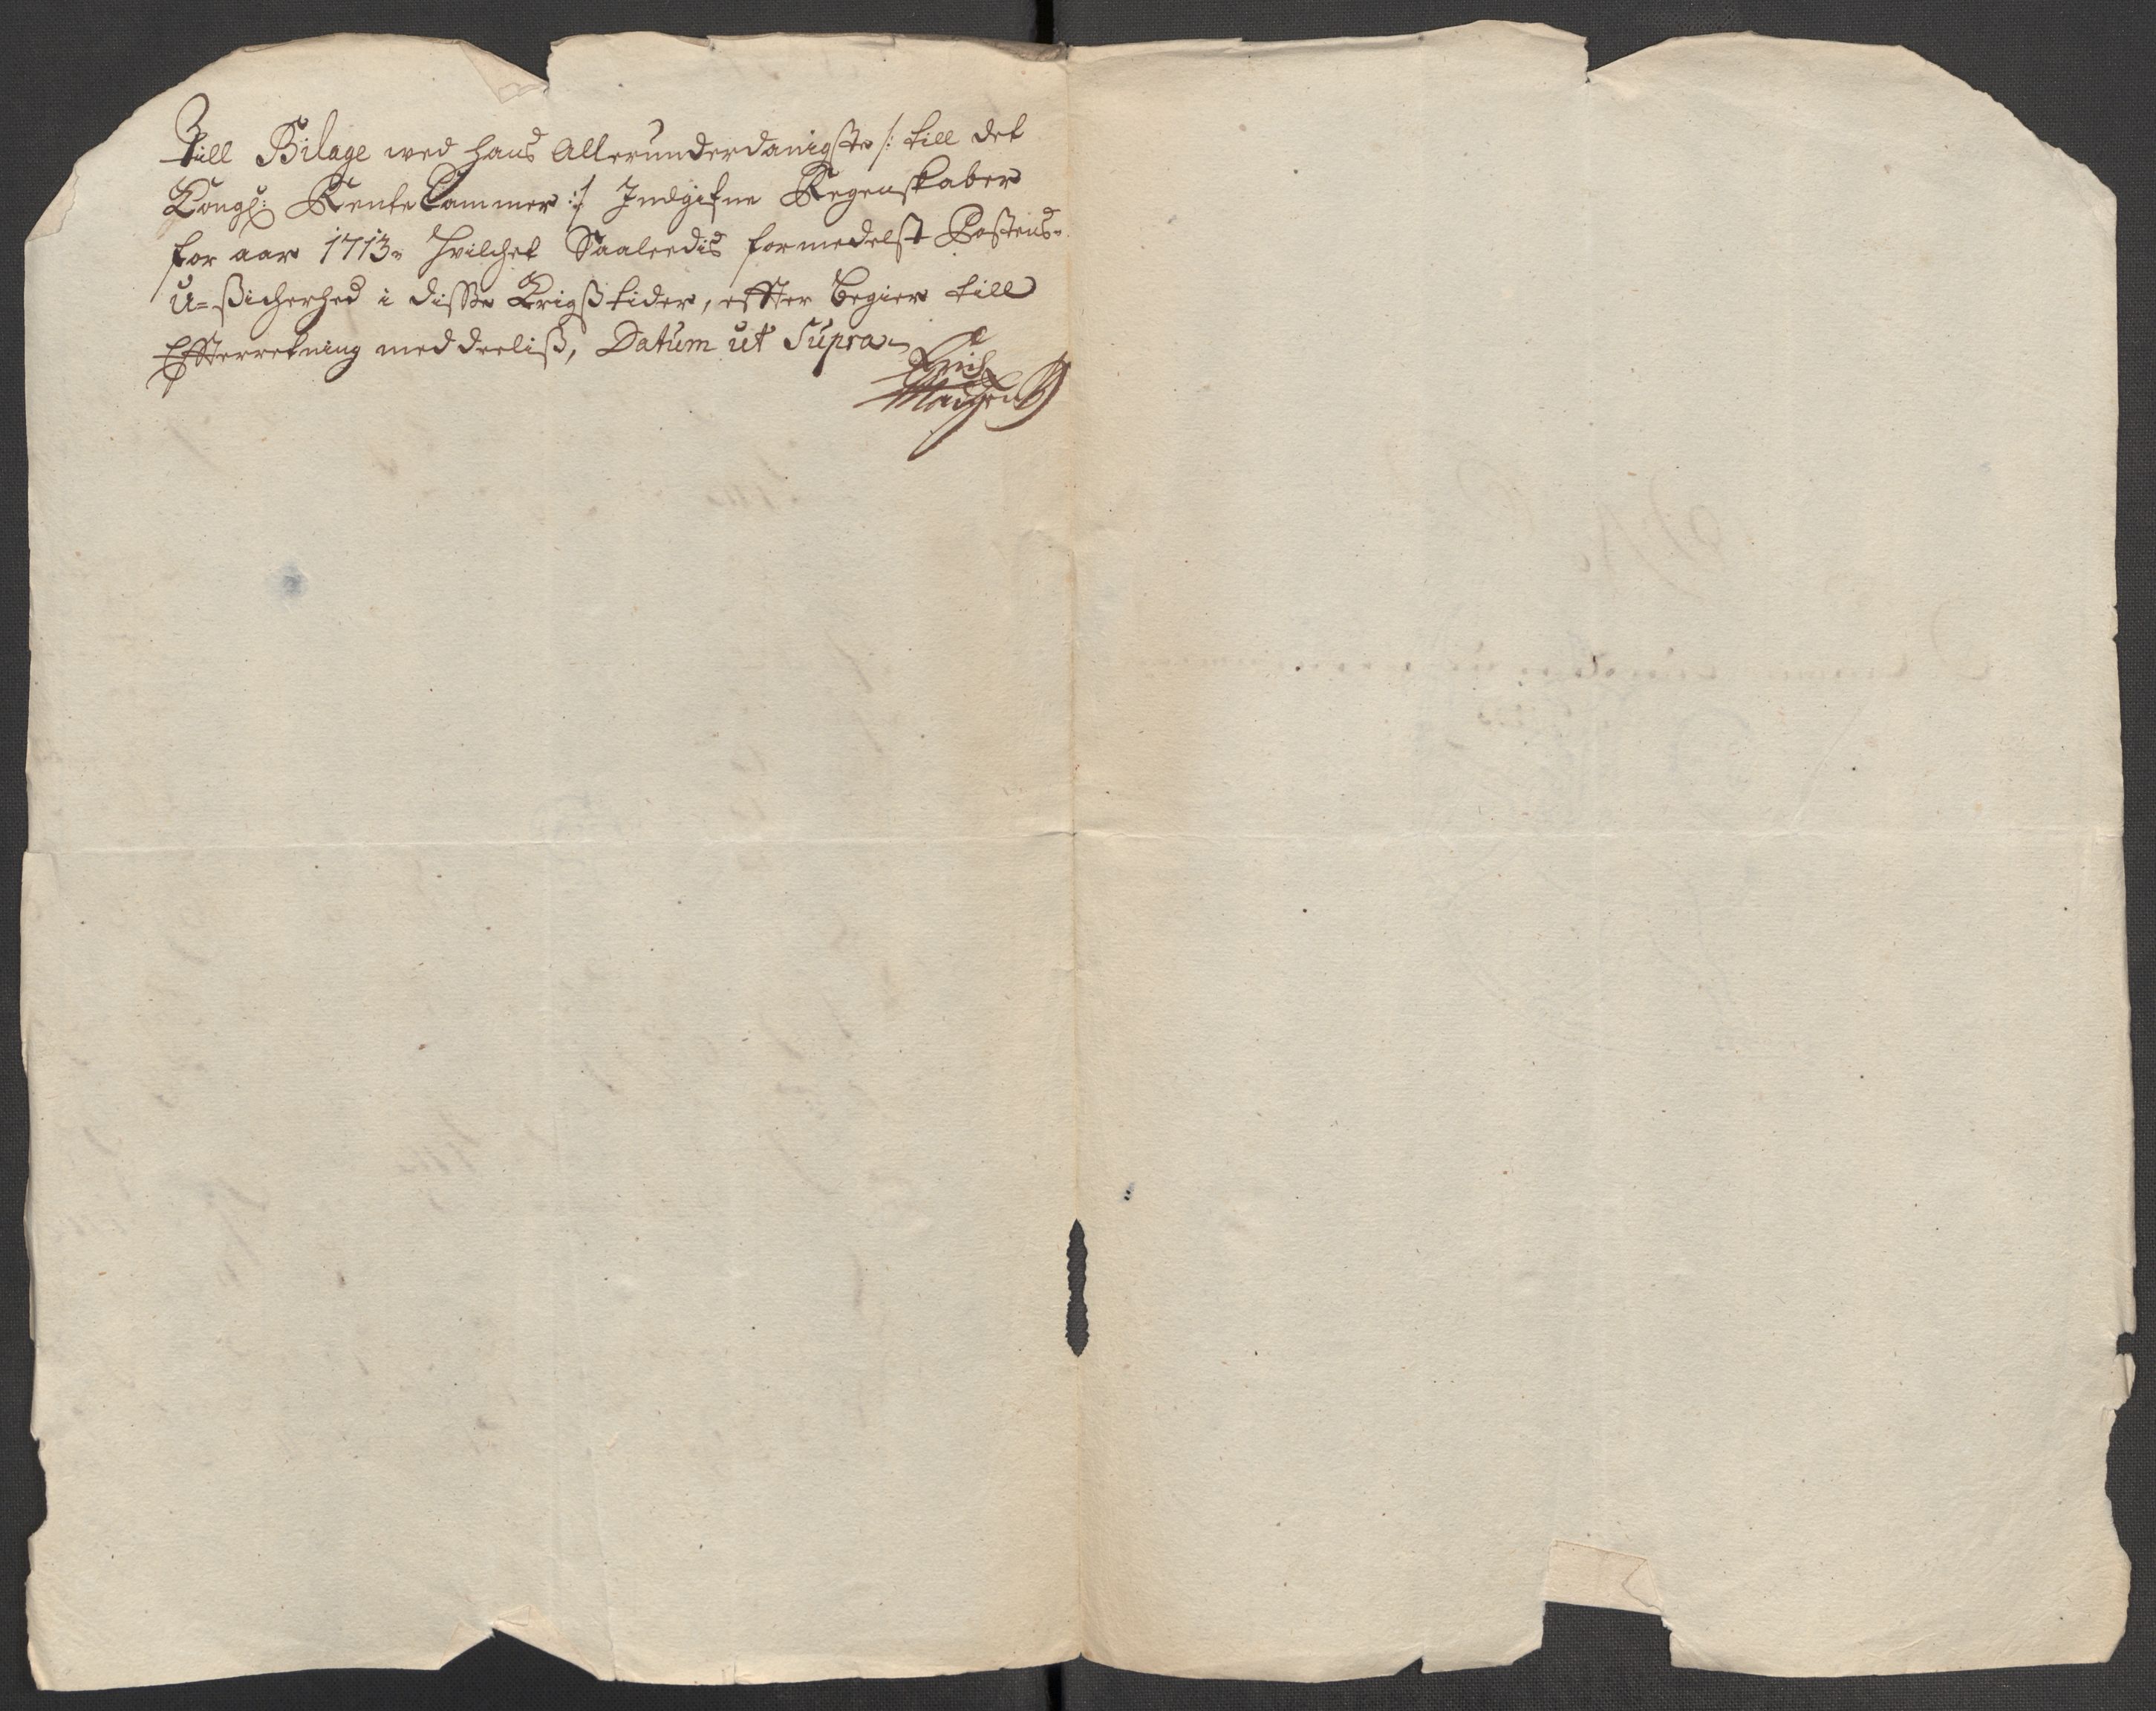 till Bilage wed hans Allerunderdanigste /: till det
Kongl: RenteCammer :/ Indgifne Regenskaber
for aar 1713. Hvilchet Saaleedis formedelst Postens
U-sicherhed i disse Krigsstider, effter begier till
Effterretning meddeeliß, Datum ut Supra
Erich